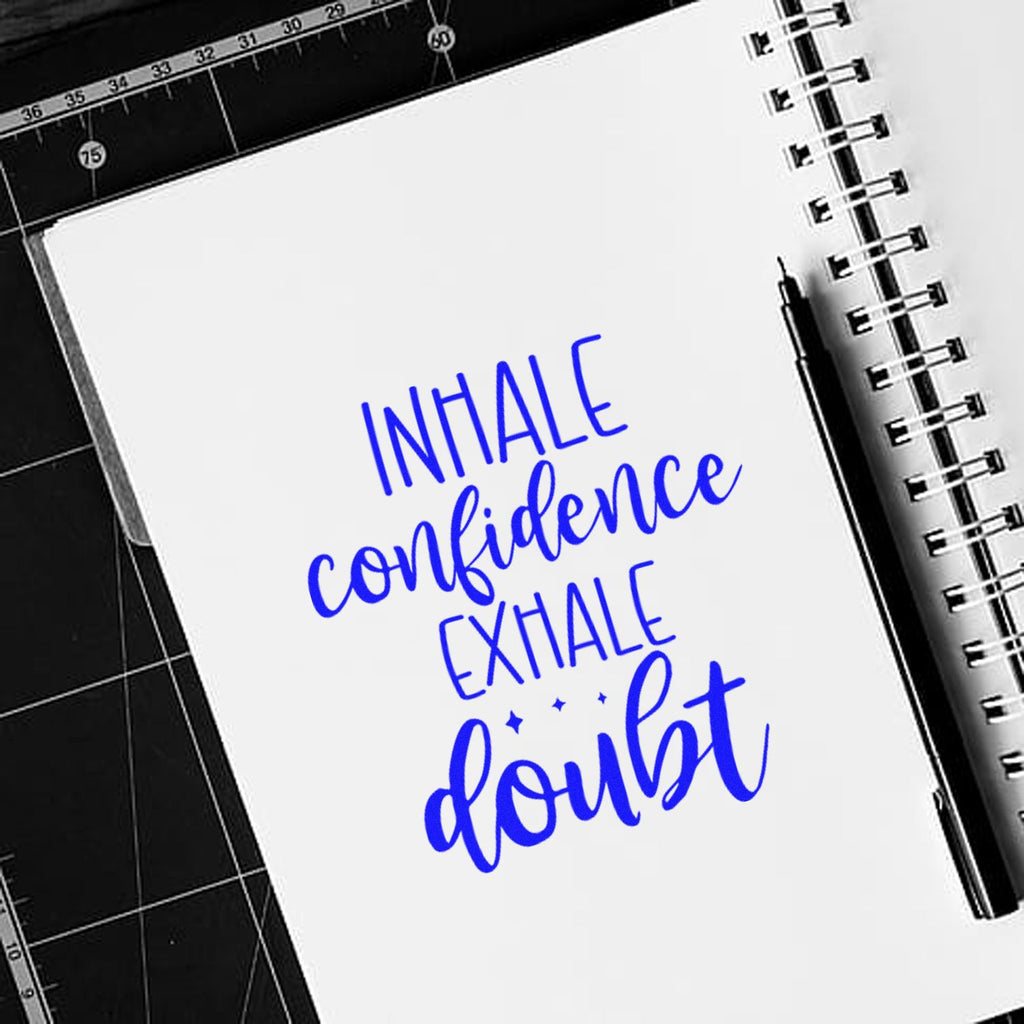 36 35 34 33 32 31 30 29
60
75
INHALE
confidence
EXHALE
doubt
10
9